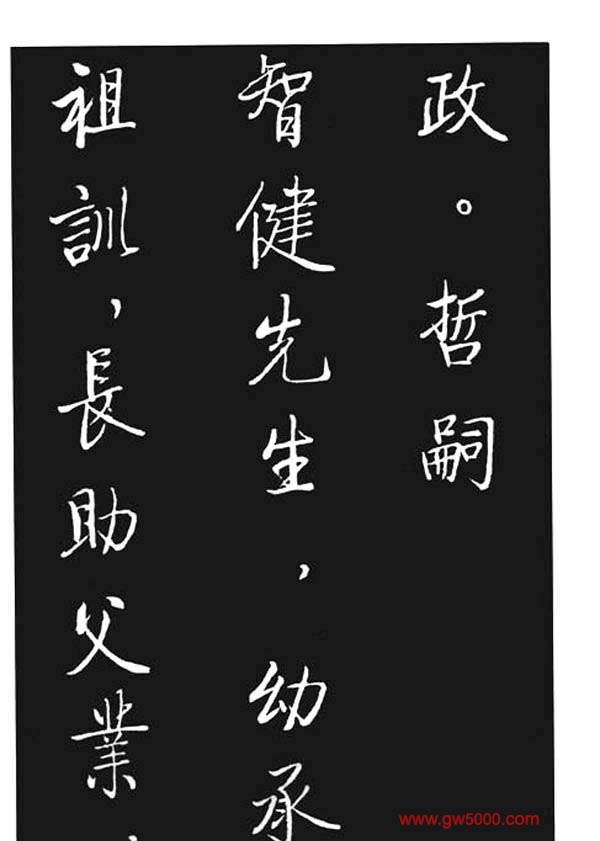 政。哲嗣
智健先生，幼承
祖訓，長助父業，
www.gw5000.com